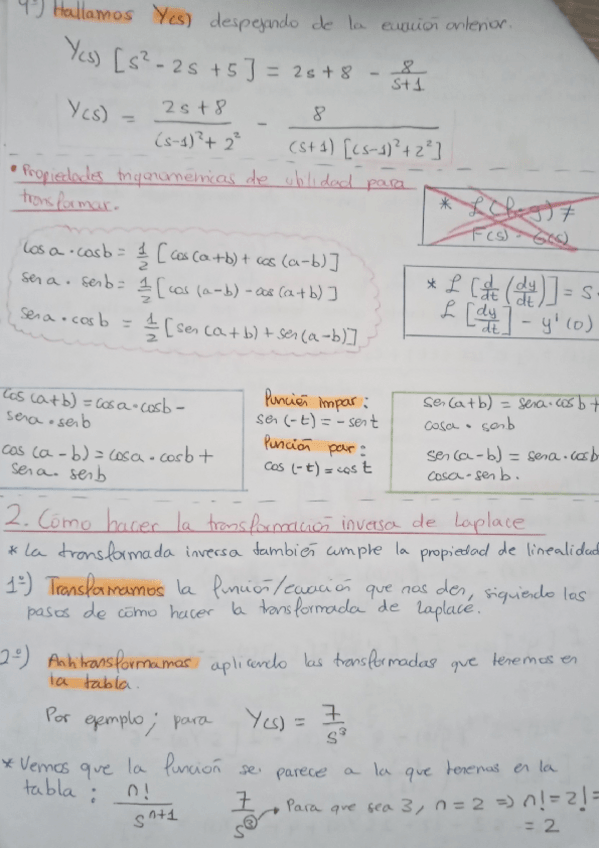 4º) Hallamos Y(s) despejando de la ecuación anterior.
Y(s) [s² - 2s + 5] = 2s + 8 - 8/(s+1)
Y(s) = (2s + 8)/((s-1)² + 2²) - 8/((s+1) [(s-1)² + 2²])
• Propiedades trigonométricas de utilidad para
transformar.
* L(f·g) ≠
F(s) · G(s)
cos a · cos b = 1/2 [cos(a+b) + cos(a-b)]
sen a · sen b = 1/2 [cos(a-b) - cos(a+b)]
sen a · cos b = 1/2 [sen(a+b) + sen(a-b)]
* L [d/dt (dy/dt)] = s ·
L [dy/dt] - y'(0)
cos(a+b) = cos a · cos b -
sen a · sen b
cos(a-b) = cos a · cos b +
sen a · sen b
Función impar:
sen(-t) = -sen t
Función par:
cos(-t) = cos t
sen(a+b) = sen a · cos b +
cos a · sen b
sen(a-b) = sen a · cos b
cos a · sen b.
2. Cómo hacer la transformación inversa de Laplace
* La transformada inversa también cumple la propiedad de linealidad
1º) Transformamos la función/ecuación que nos den, siguiendo los
pasos de cómo hacer la transformada de Laplace.
2º) Antitransformamos aplicando las transformadas que tenemos en
la tabla.
Por ejemplo; para Y(s) = 7/s³
* Vemos que la función se parece a la que tenemos en la
tabla: n!/s^(n+1) 7/s³ → Para que sea 3, n = 2 ⇒ n! = 2! =
= 2